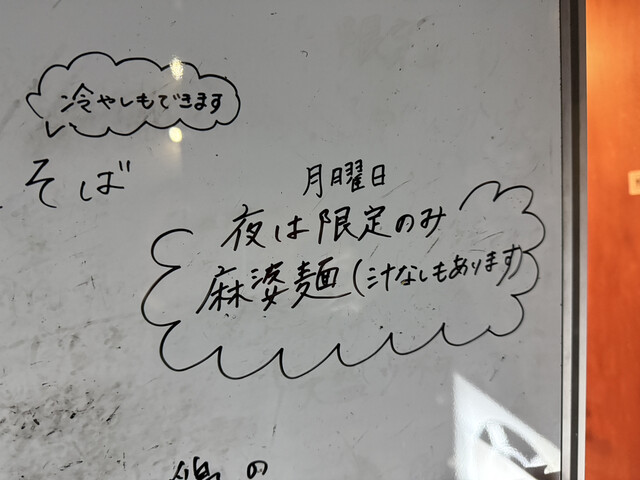 冷やしもできます
そば
月曜日
夜は限定のみ
麻婆麺(汁なしもあります)
の